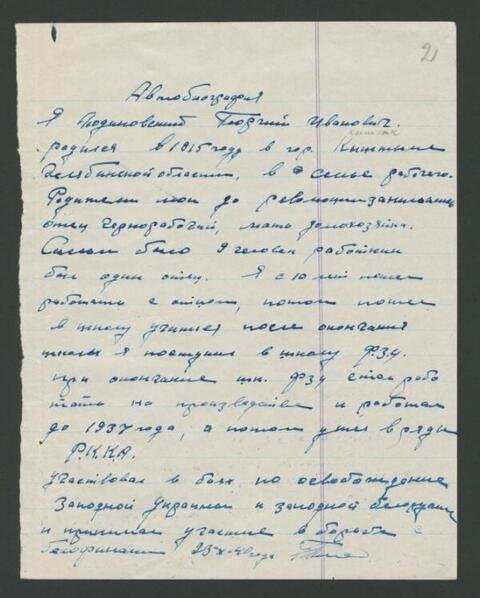 21
Автобиография
Я Георгий Иванович.
родился в 1915 году в гор. Кыштыме
кыштым
Челябинской области, в семье рабочего.
Родители мои до революции занимались
отец чернорабочий, мать домохозяйка.
Семьи было 9 человек работник
был один отец. Я с 10 лет пошел
работать с отцом, потом пошел
в школу учится после окончания
школы я поступил в школу Ф.З.У.
при окончание шк. Ф З У стал рабо
тать на производстве и работал
до 1937 года, а потом ушел в ряды
Р.К.К.А.
Участвовал в боях по освобождение
Западной Украины и западной Белоруссии
и принимал участие в борьбе с
белофинами